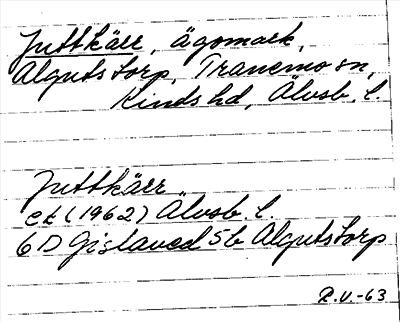 Juttkärr, ägomark,
Algutstorp, Tranemo sn,
Kinds hd, Älvsb. l.
Juttkärr
ek (1962) Älvsb. l.
6D Gislaved 5b Algutstorp
R.V.-63